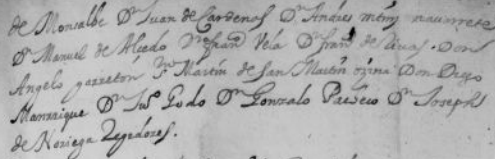 de Moncalbe Dn Juan de Cardenas Dn Andres mrnz navarrete
Dn Manuel de Alcedo Dn franco Vela Dn franco de Rivas. Don
Angelo garreton Dn Martin de San Martin ozina Don Diego
Manrique Dn Juo Godo Dn Gonzalo Pacheco Dn Joseph
de Noriega Regidores.